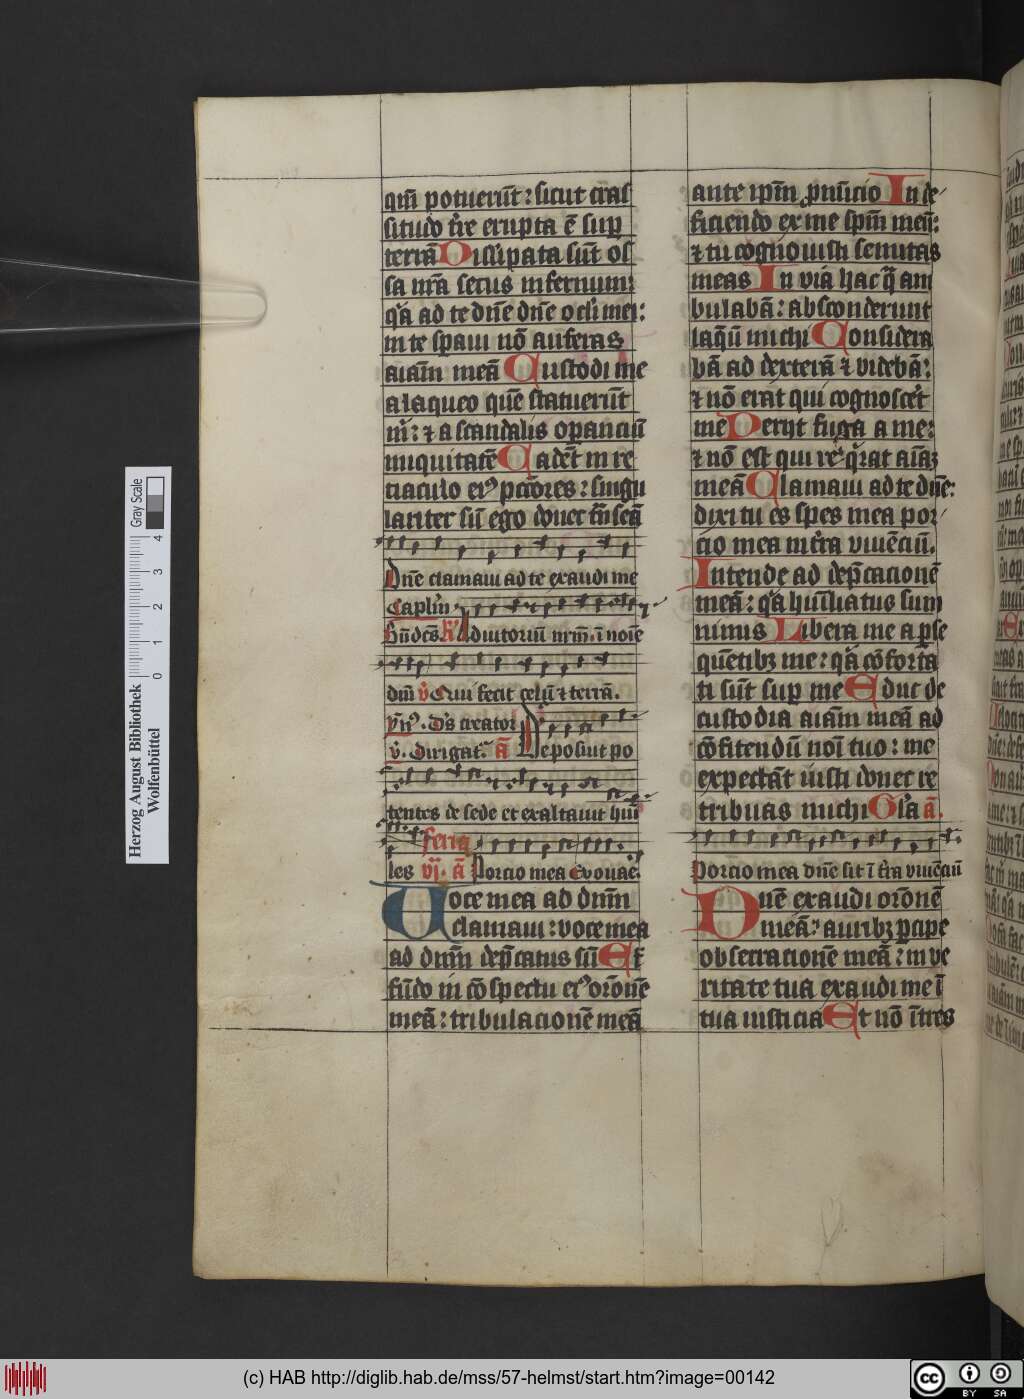 qm̄ potuerūt : sicut cras
situdo tr̄e erupta ē suꝑ
terrā Dissipata sūt os
sa nr̄a secus infernum:
qꝛa ad te dn̄e dn̄e oculi mei:
in te sꝑaui nō auferas
aīam meā Custodi me
a laqueo quē statuerūt
m̄: ⁊ a scandalis oꝑanciū
iniquitatē Cadēt in re
ciaculo eiꝰ pctōres : singu
lariter sū ego donec trāseā
Dn̄e clamaui ad te exaudi me
Capl̄m
Adiutoriū nr̄m ī noīe
dn̄i v̄ Qui fecit celū ⁊ terrā.
Ds creator Deposuit po
v̄. Dirigatꝛ ā
tentes de sede et exaltauit hūi
les feria vj. ā Porcio mea Evouae.
Uoce mea ad dnm̄
clamaui : voce mea
ad dnm̄ dep̄catus sū Ef
fūdo in cōspectu eiꝰ orōnē
meā : tribulacionē meā
ante ipm̄ ꝓnūcio In de
ficiendo ex me spm̄ meū:
⁊ tu cognouisti semitas
meas In viā hac q̄ am
bulabā : absconderunt
laqueū michi Considera
bā ad dexterā ⁊ videbā:
⁊ nō erāt qui cognoscēt
me Perijt fuga a me:
⁊ nō est qui reqꝛat aīaꝫ
meā Clamaui ad te dn̄e:
dixi tu es spes mea por
cio mea in tr̄a viuēciū.
Intende ad dep̄cacionē
meā : qꝛa hūiliatus sum
nimis Libera me a ꝑse
quētibꝫ me : qꝛa cōforta
ti sūt suꝑ me Educ de
custodia aīam meā ad
cōfitendū noī tuo : me
expectāt iusti donec re
tribuas michi Glꝛa ā.
Porcio mea dn̄e sit ī tr̄a viuēciū
Dn̄e exaudi orōnē
meā : auribꝫ ꝑcipe
obsecracionē meā : in ve
ritate tua exaudi me ī
tua iusticia Et nō ītres
Gray Scale
4
3
2
1
0
cm
Herzog August Bibliothek
Wolfenbüttel
(c) HAB http://diglib.hab.de/mss/57-helmst/start.htm?image=00142
cc
BY SA